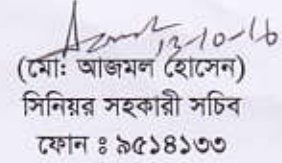 13-10-16
(মোঃ আজমল হোসেন)
সিনিয়র সহকারী সচিব
ফোন ঃ ৯৫১৪১৩৩